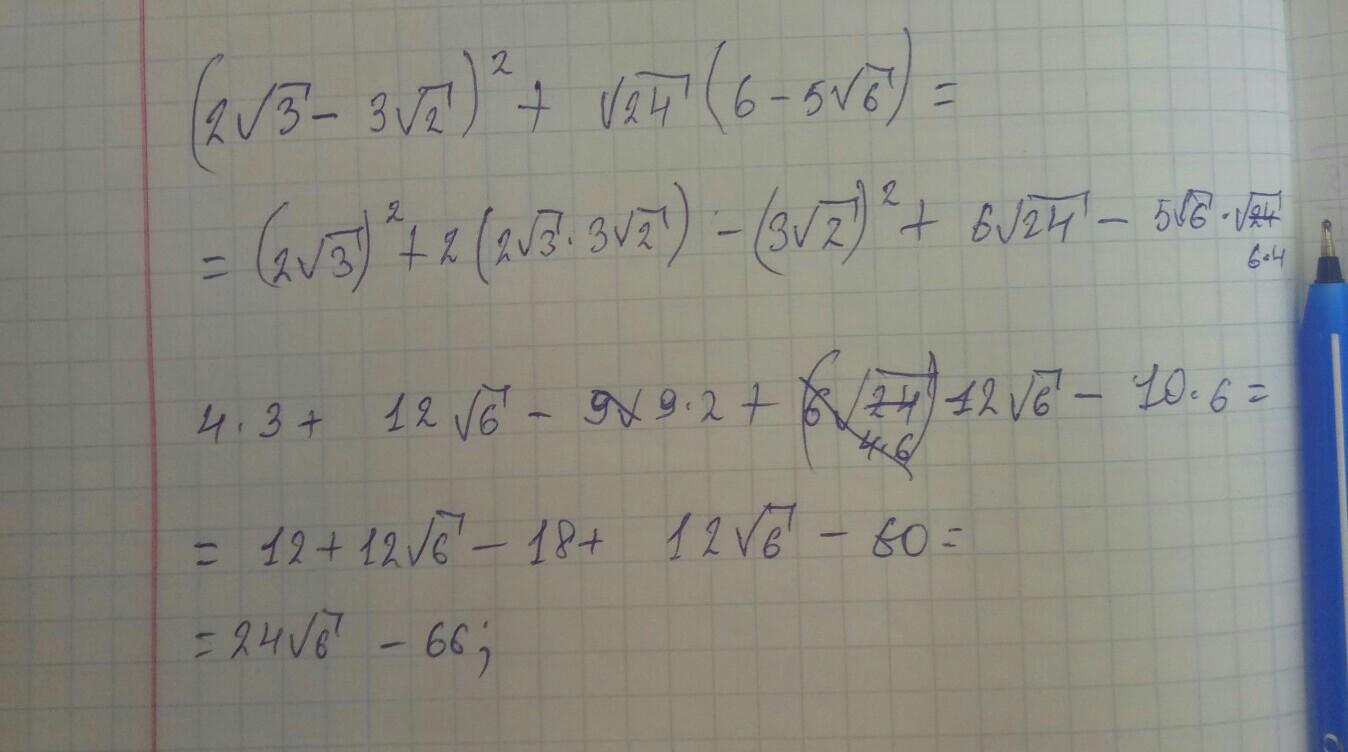 (2√3 - 3√2)² + √24 (6 - 5√6) =
= (2√3)² + 2 (2√3 · 3√2) - (3√2)² + 6√24 - 5√6 · √24
6·4
4·3 + 12√6 - 9·2 + (6√24) 12√6 - 10·6 =
4·6
= 12 + 12√6 - 18 + 12√6 - 60 =
= 24√6 - 66;